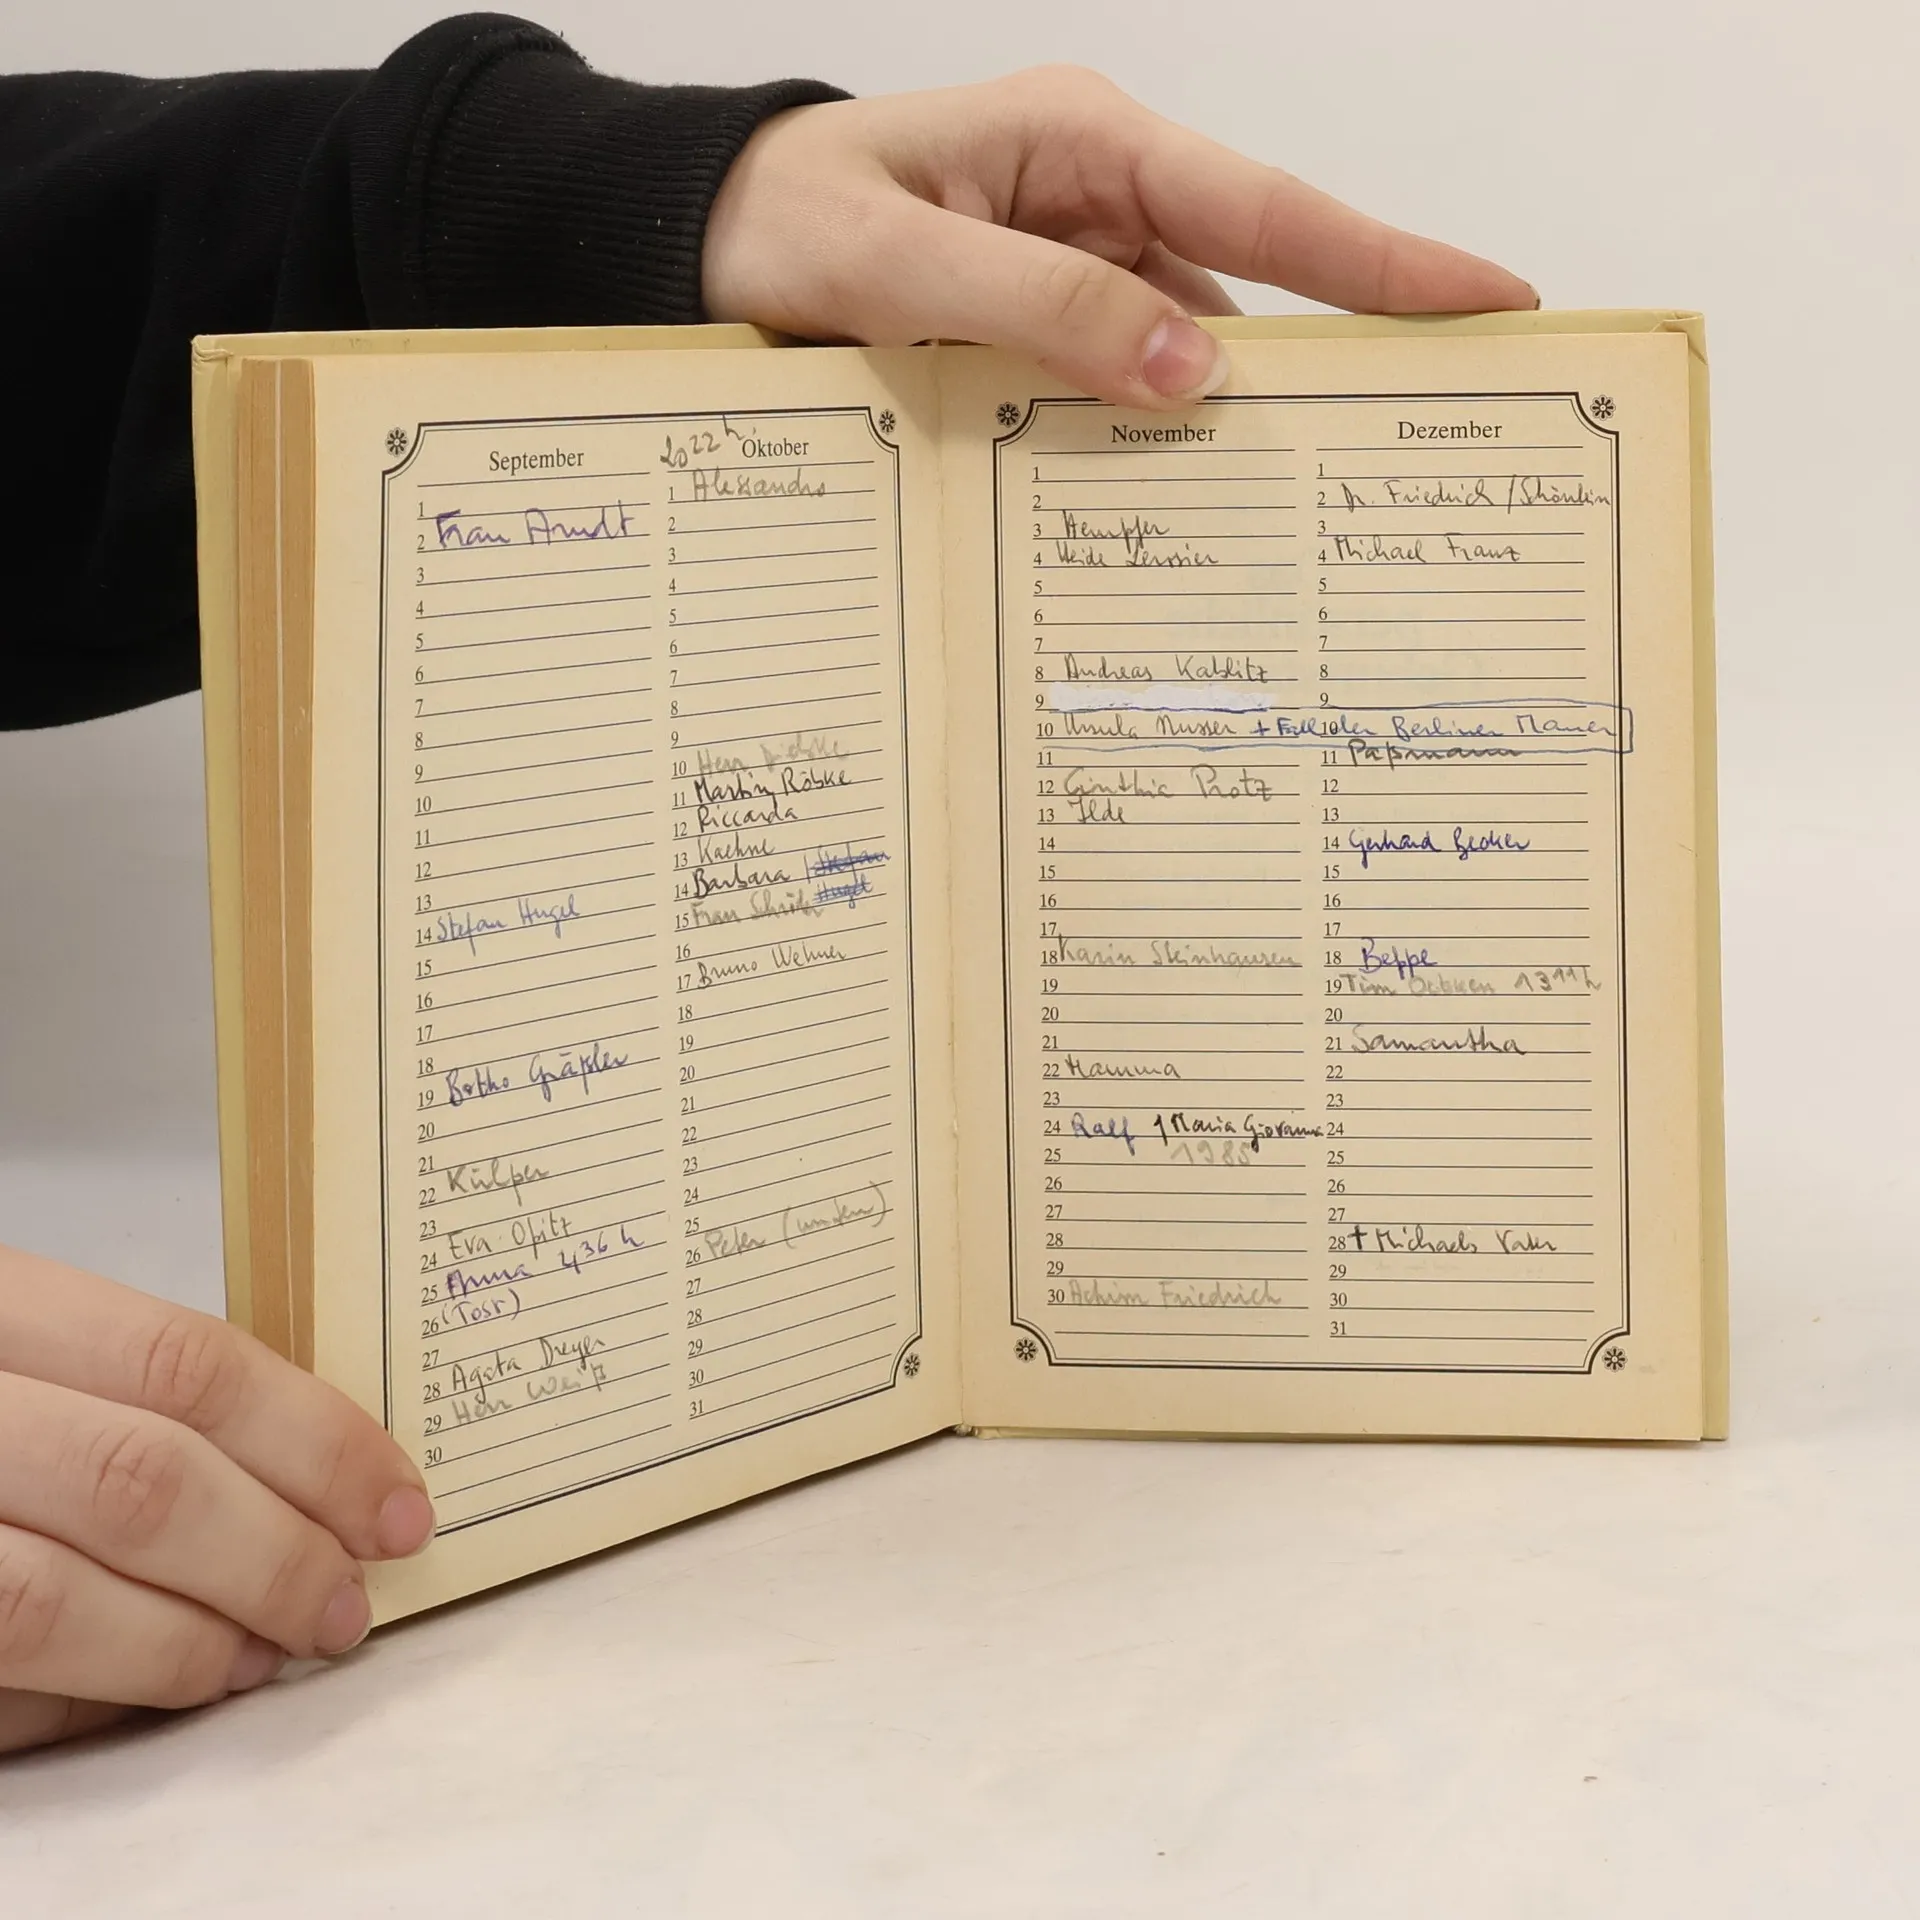 September
1
2 Frau Arndt
3
4
5
6
7
8
9
10
11
12
13
14 Stefan Hugel
15
16
17
18
19 Botho Gräßler
20
21
22 Külper
23
24 Eva Opitz
25 Anna 4 36 h
26 (Tosr)
27
28 Agata Dreyer
29 Herr Weiß
30
20 22 h
Oktober
1 Alessandro
2
3
4
5
6
7
8
9
10 Herr
11 Martin Röbke
12 Riccarda
13 Kaehne
14 Barbara / Stefan
15 Frau Hugel
16
17 Bruno Wehner
18
19
20
21
22
23
24
25
26 Peter (unten)
27
28
29
30
31
November
1
2
3 Hempfer
4 Heide
5
6
7
8 Andreas Kablitz
9
10 Ursula Musser + Fall der Berliner Mauer
11
12 Cinthia Protz
13 Ilde
14
15
16
17
18 Karin Steinhausen
19
20
21
22 Mamma
23
24 Ralf / Maria Giovanna
25 1985
26
27
28
29
30 Achim Friedrich
Dezember
1
2 Dr. Friedrich / Schönlein
3
4 Michael Franz
5
6
7
8
9
10
11 Paßmann
12
13
14 Gerhard Becker
15
16
17
18 Beppe
19 Tim 13 11 h
20
21 Samantha
22
23
24
25
26
27
28 † Michaels Vater
29
30
31